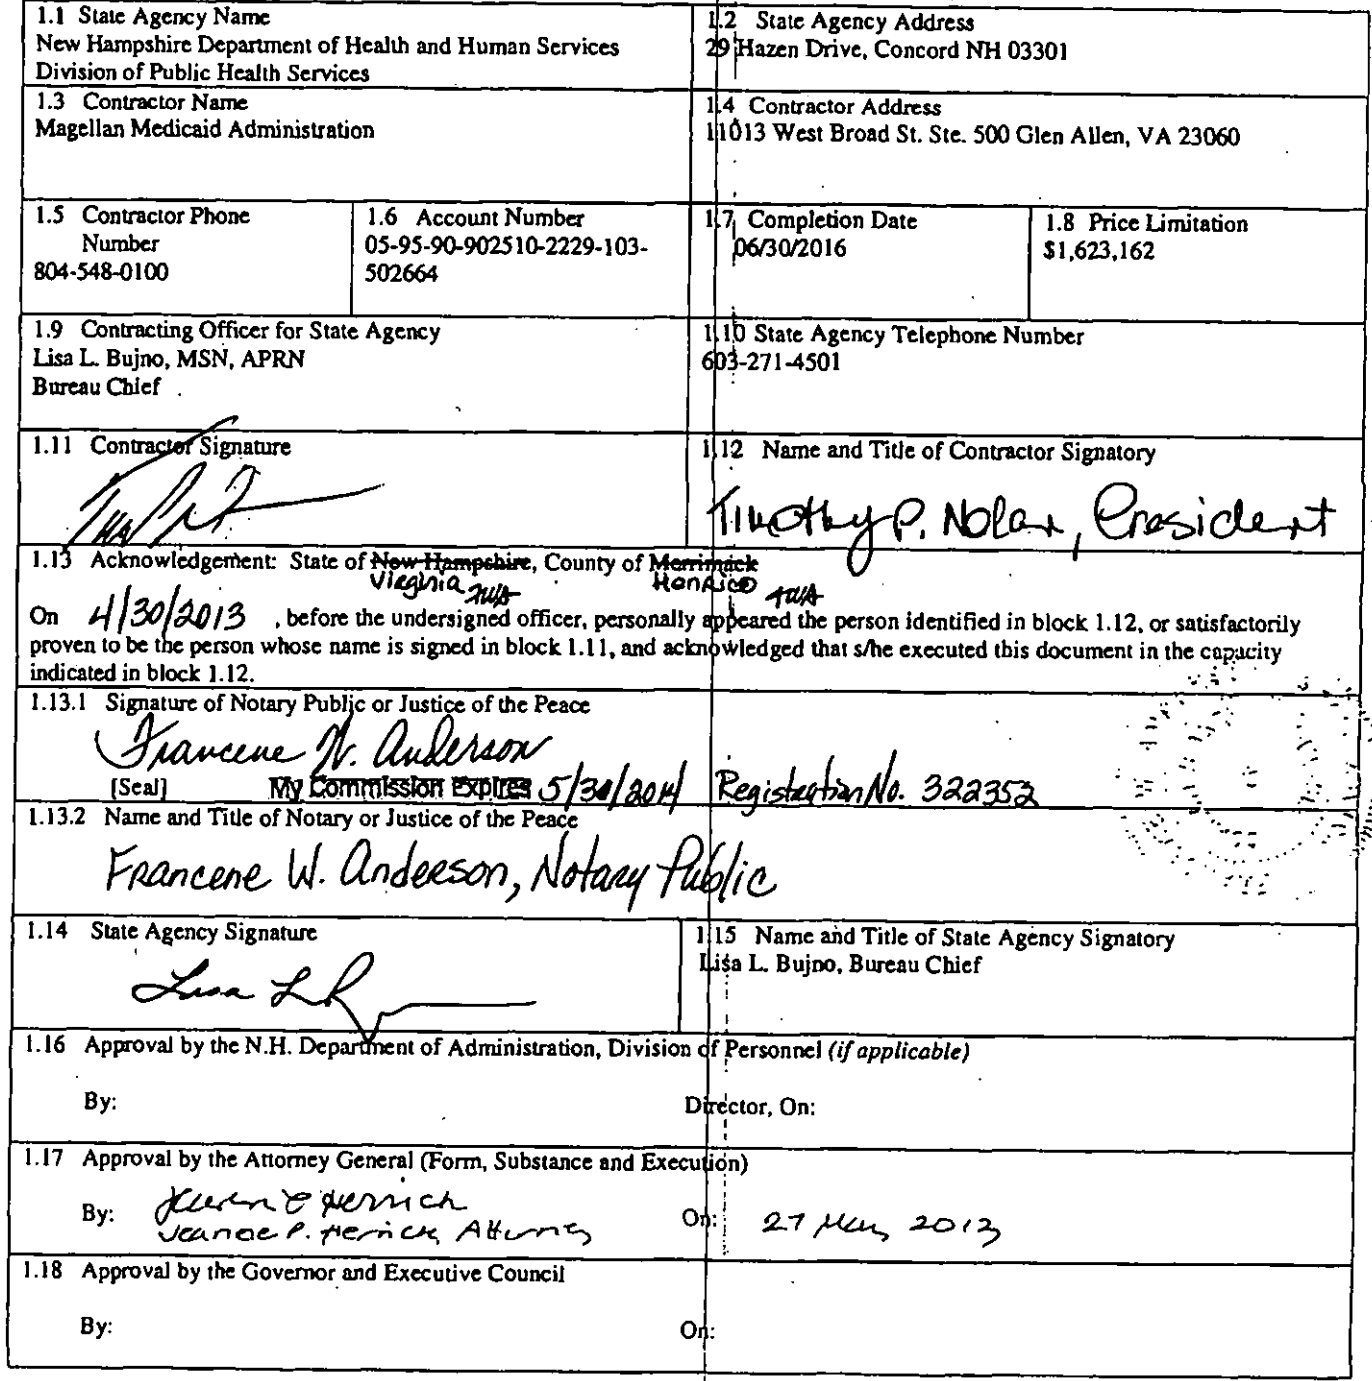 1.1 State Agency Name
New Hampshire Department of Health and Human Services
Division of Public Health Services
1.2 State Agency Address
29 Hazen Drive, Concord NH 03301
1.3 Contractor Name
Magellan Medicaid Administration
1.4 Contractor Address
11013 West Broad St. Ste. 500 Glen Allen, VA 23060
1.5 Contractor Phone
Number
804-548-0100
1.6 Account Number
05-95-90-902510-2229-103-
502664
1.7 Completion Date
06/30/2016
1.8 Price Limitation
$1,623,162
1.9 Contracting Officer for State Agency
Lisa L. Bujno, MSN, APRN
Bureau Chief
1.10 State Agency Telephone Number
603-271-4501
1.11 Contractor Signature
1.12 Name and Title of Contractor Signatory
Timothy P. Nolan, President
1.13 Acknowledgement: State of New Hampshire, County of Merrimack
Virginia Henrico
On 4/30/2013 , before the undersigned officer, personally appeared the person identified in block 1.12, or satisfactorily
proven to be the person whose name is signed in block 1.11, and acknowledged that s/he executed this document in the capacity
indicated in block 1.12.
1.13.1 Signature of Notary Public or Justice of the Peace
Francene W. Anderson
[Seal] My Commission Expires 5/30/2014 Registration No. 322352
1.13.2 Name and Title of Notary or Justice of the Peace
Francene W. Anderson, Notary Public
1.14 State Agency Signature
1.15 Name and Title of State Agency Signatory
Lisa L. Bujno, Bureau Chief
1.16 Approval by the N.H. Department of Administration, Division of Personnel (if applicable)
By: Director, On:
1.17 Approval by the Attorney General (Form, Substance and Execution)
By: Jeanne P. Herrick, Attorney On: 27 May 2013
1.18 Approval by the Governor and Executive Council
By: On: